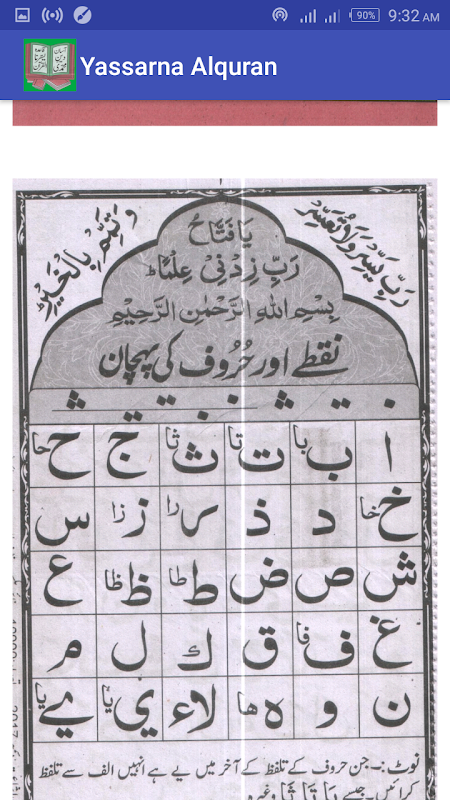 90% 9:32 AM
Yassarna Alquran
۱
رَبِّ يَسِّرْ وَلَا تُعَسِّرْ
وَتَمِّمْ بِالْخَيْرِ
يَا فَتَّاحُ
رَبِّ زِدْنِيْ عِلْمًا
بِسْمِ اللهِ الرَّحْمٰنِ الرَّحِيْمِ
نقطے اور حُرُوف کی پہچان
ا ب با ت تا ث ثا ج ح حا
خ خا د ذ ر را ز زا س
ش ص ض ط طا ظ ظا ع
غ ف فا ق ك ل م
ن و ه ها لا ء ي يا ے يا
نوٹ:۔ جن حروف کے تلفظ کے آخر میں یے ہے انہیں الف سے تلفظ
کرائیں۔ جیسے بَا تَا ثَا وغیرہ